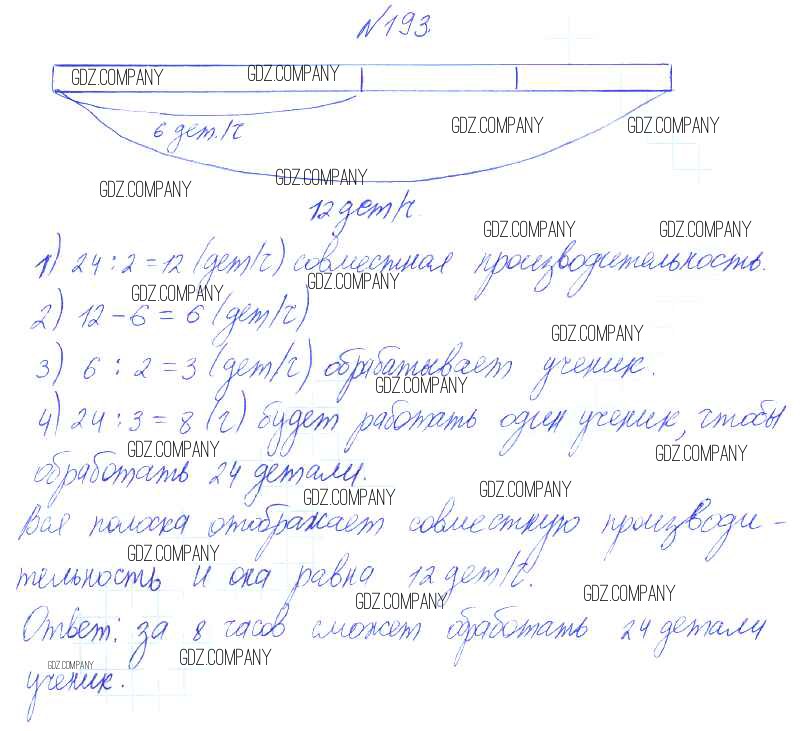 №193.
GDZ.COMPANY GDZ.COMPANY
6 дет./ч GDZ.COMPANY GDZ.COMPANY
GDZ.COMPANY GDZ.COMPANY
12 дет/ч.
GDZ.COMPANY GDZ.COMPANY
1) 24 : 2 = 12 (дет/ч) совместная производительность.
GDZ.COMPANY GDZ.COMPANY
2) 12 - 6 = 6 (дет/ч)
GDZ.COMPANY
3) 6 : 2 = 3 (дет/ч) обрабатывает ученик.
GDZ.COMPANY
4) 24 : 3 = 8 (ч) будет работать один ученик, чтобы
GDZ.COMPANY GDZ.COMPANY
обработать 24 детали.
GDZ.COMPANY GDZ.COMPANY
Вся полоска отображает совместную производи-
GDZ.COMPANY
тельность и она равна 12 дет/ч.
GDZ.COMPANY GDZ.COMPANY
Ответ: за 8 часов сможет обработать 24 детали
GDZ.COMPANY GDZ.COMPANY
ученик.